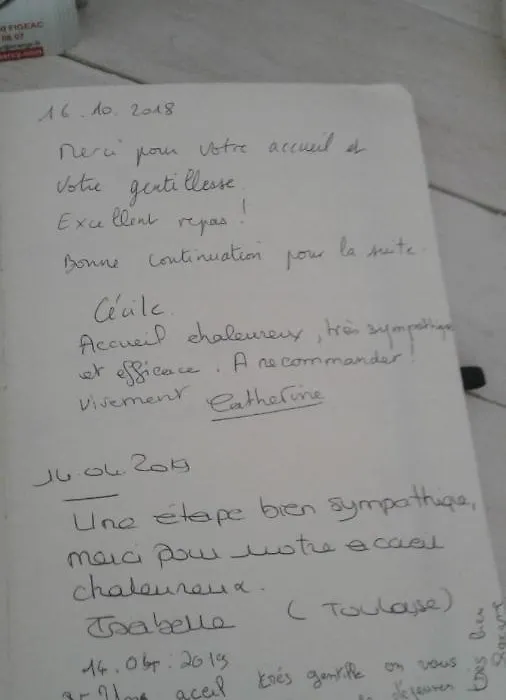 FIGEAC
16.10.2018
Merci pour votre accueil et
votre gentillesse
Excellent repas !
Bonne continuation pour la suite.
Cécile.
Accueil chaleureux, très sympathique
et efficace. A recommander !
vivement Catherine
14.04.2019
Une étape bien sympathique,
merci pour votre acceuil
chaleureux.
Isabelle (Toulouse)
14.04.2019
aceil très gentille on vous
très bien